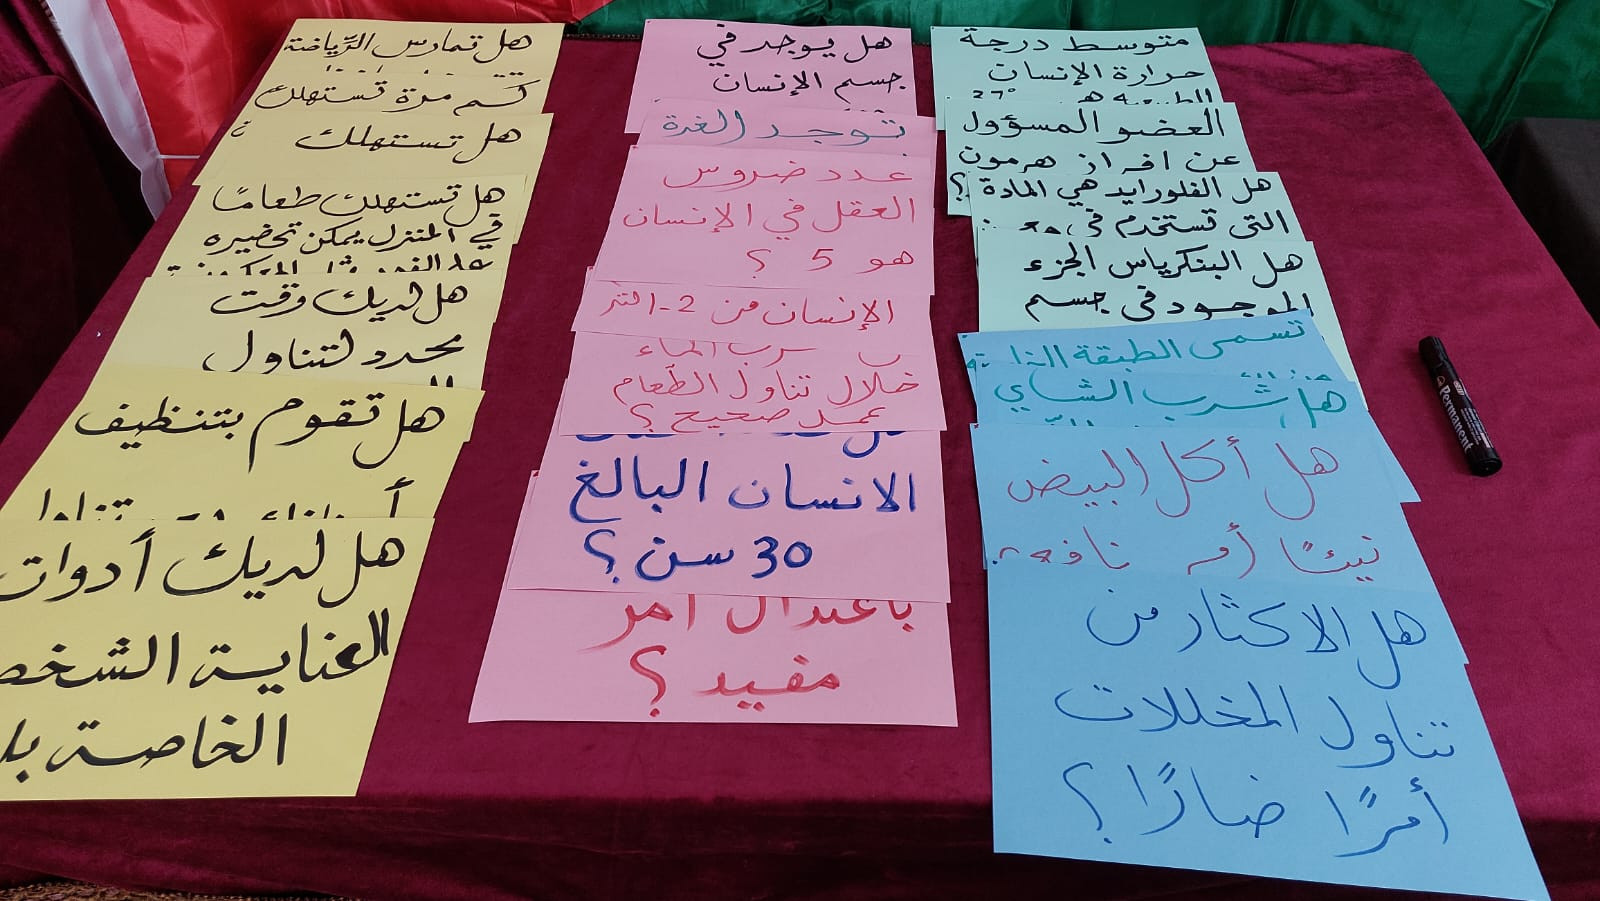 متوسط درجة
حرارة الإنسان
العضو المسؤول
عن افراز هرمون
هل الفلورايد هي المادة
التى تستخدم في
هل البنكرياس الجزء
الموجود فى جسم
تسمى الطبقة
هل شرب الشاي
هل أكل البيض
نيئًا أمر نافع
هل الاكثار من
تناول المخللات
أمرًا ضارًا؟
هل يوجد في
جسم الإنسان
توجد الغدة
عدد ضروس
العقل في الإنسان
هو 5 ؟
الإنسان من 2-
شرب الماء
خلال تناول الطعام
عمل صحيح ؟
الانسان البالغ
30 سن ؟
باعتدال امر
مفيد ؟
هل تمارس الرِّياضة
كم مرة تستهلك
هل تستهلك
هل تستهلك طعامًا
في المنزل يمكن تحضيره
هل لديك وقت
محدد لتناول
هل تقوم بتنظيف
هل لديك أدوات
العناية
الخاصة
Permanent